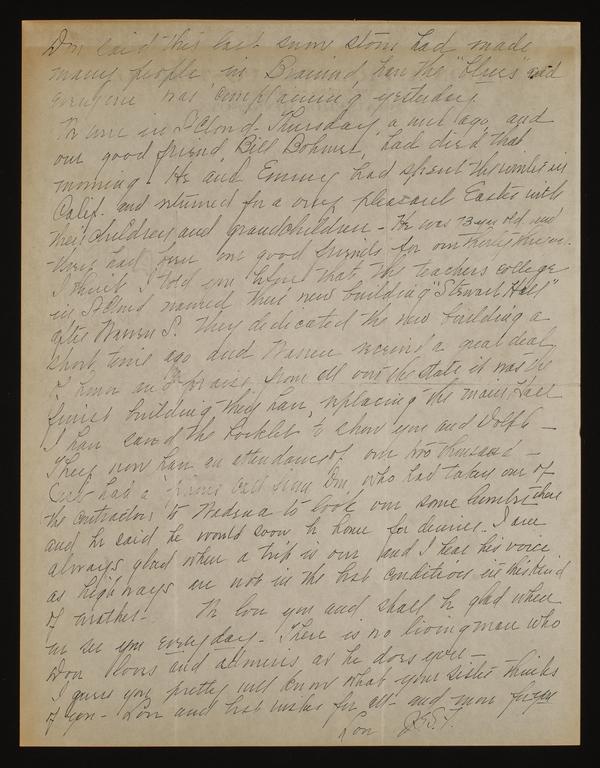 Don said this last snow storm had made
many people in Brainerd have the "blues" and
everyone was complaining yesterday.
We were in St Cloud - Thursday a week ago, and
our good friend, Bill Bohmer, had died that
morning. He and Emmy had spent the winter in
Calif. and returned for a very pleasant Easter with
their children and grandchildren - He was 73 yrs old and
they had been our good friends for over thirty three yrs.
I think I told you before that the teachers college
in St Cloud named their new building "Stewart Hall"
after Warren S. They dedicated the new building a
short time ago and Warren received a great deal
of honor and praise from all over the state it was the
finest building they have, replacing the main, Hall
I have saved the booklet to show you and
They now have an attendance of over two thousand -
had a phone call from Don who had taken one of
the contractors to Wadena to look over some lumber there
and he said he would soon be home for dinner. I am
always glad when a trip is over and I hear his voice
as highways are not in the best condition in this kind
of weather - We love you and shall be glad when
we see you everyday - There is no living man who
Don loves and admires as he does you -
I guess you pretty well know what your sister thinks
of you - Love and best wishes for all - and more for you
Love